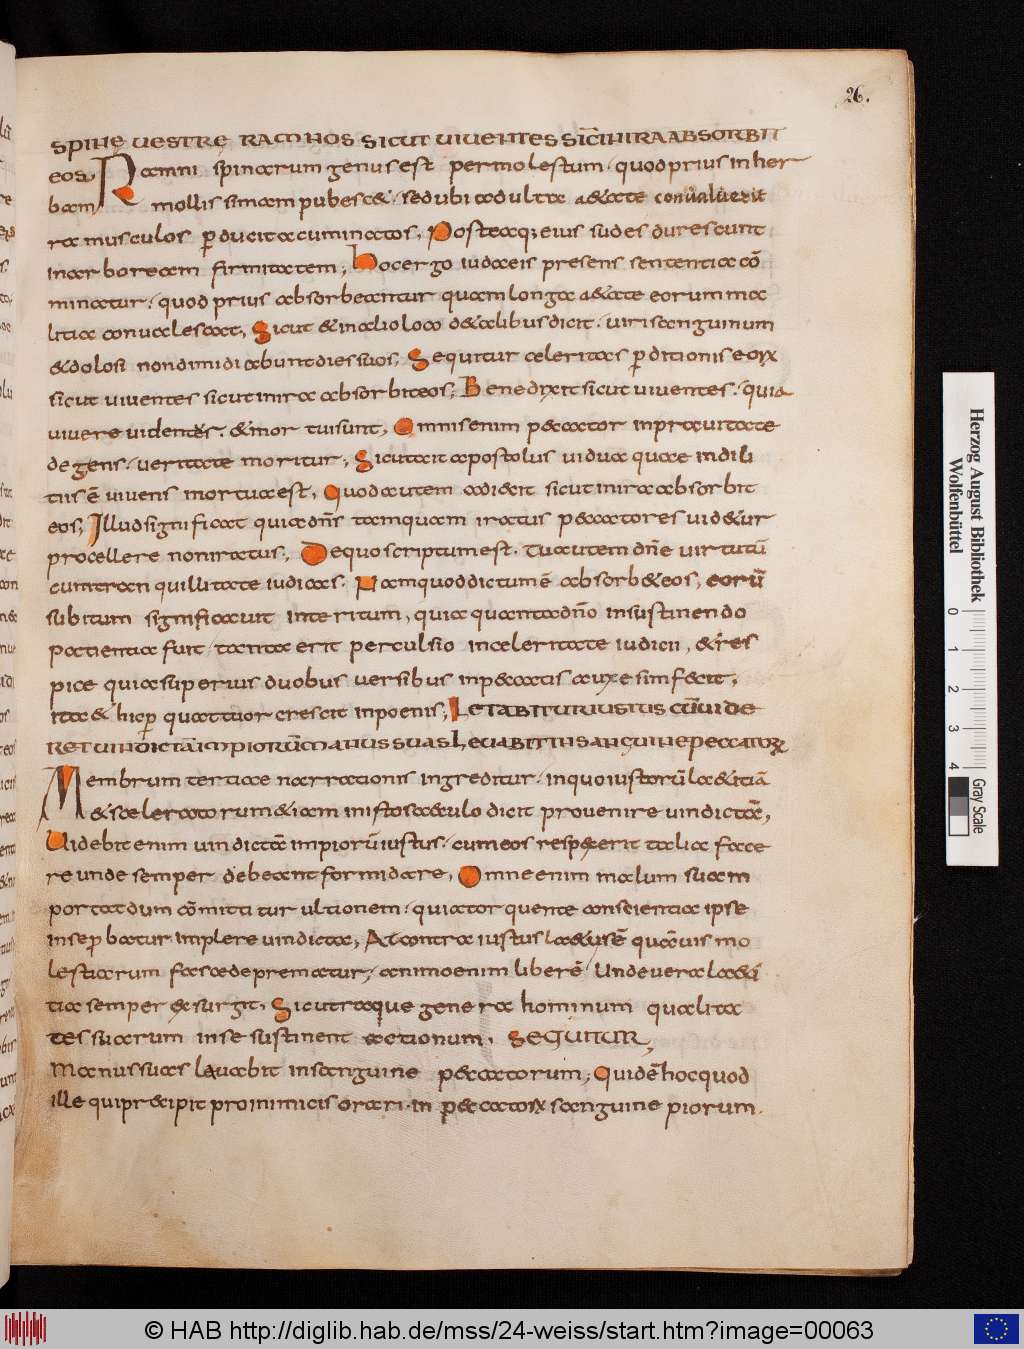 26.
SPINE VESTRE RAMNOS SICUT VIVENTES SIC̄ IN IRA ABSORBIT
eos, Ramni spinarum genus est permolestum · quod prius in her
bam mollis simam pubesc& · sed ubi ad ultra a&ate convaluerit
ra musculos p̱ducit acuminatos, Posteaq; eius sudes durescunt
in arboream firmitatem; Hoc ergo iudaeis presens sententia cō
minatur · quod prius absorbeantur quam longa a&ate eorum ma
litia convalescat, Sicut & in alio loco d& alibus dicit · viri sanguinum
& dolosi non dimidiabunt dies suos; Sequitur celeritas p̱ditionis eoꝝ
sicut viventes sicut in ira absorbit eos; Bene dixit sicut viventes · quia
vivere videntes · & mortui sunt, Omnis enim peccator in pravitate
degens · veritate moritur; Sicut ait apostolus vidua quae in dili
tiis ē vivens mortua est, Quod autem addidit sicut in ira absorbit
eos; Illud significat quia dn̄s tamquam iratus peccatores vid&ur
procellere non iratus; De quo scriptum est · Tu autem dn̄e virtutū
cum tranquillitate iudicas · Nam quod dictum ē absorb& eos, eorū
subitum significavit interitum, quia quanta dn̄o in sustinendo
patientia fuit · tanta erit perculsio in celeritate iudicii, & res
pice quia superius duobus versibus in peccatis auxesim fecit,
ita & hic p̱ quattuor crescit in poenis; LETABITUR IUSTUS CŪ VIDE
RET VINDICTĀ IMPIORŪ MANUS SUAS LEVABIT IN SANGUINE PECCATOꝝ
Membrum tertiae narrationis ingreditur · in quo iustorū laetitiā
& sceleratorum & iam in isto saeculo dicit provenire vindictā,
Videbit enim vindictā impiorū iustus · cum eos respexerit talia face
re unde semper debeant formidare, Omne enim malum suam
portat dum cōmittitur ultionem · quia torquente conscientia ipse
in se p̱batur implere vindicta, At contra iustus la&us ē quāvis mo
lestiarum fasce deprematur, animo enim liber ē · Unde vera la&i
tia semper exsurgit, Sicut raque genera hominum qualita
tes suarum in se sustinent actionum, SEQUITUR,
Manus suas lavabit in sanguine peccatorum; Quid ē hoc quod
ille qui praecipit pro inimicis orari · in peccatoꝝ sanguine piorum.
Herzog August Bibliothek
Wolfenbüttel
0 1 2 3 4
Gray Scale
© HAB http://diglib.hab.de/mss/24-weiss/start.htm?image=00063